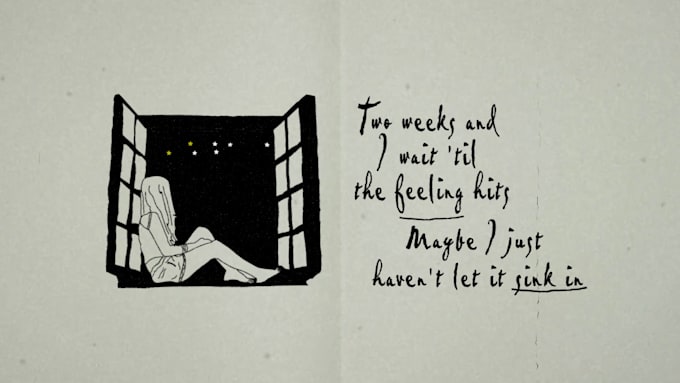 Two weeks and
I wait 'til
the feeling hits
Maybe I just
haven't let it sink in